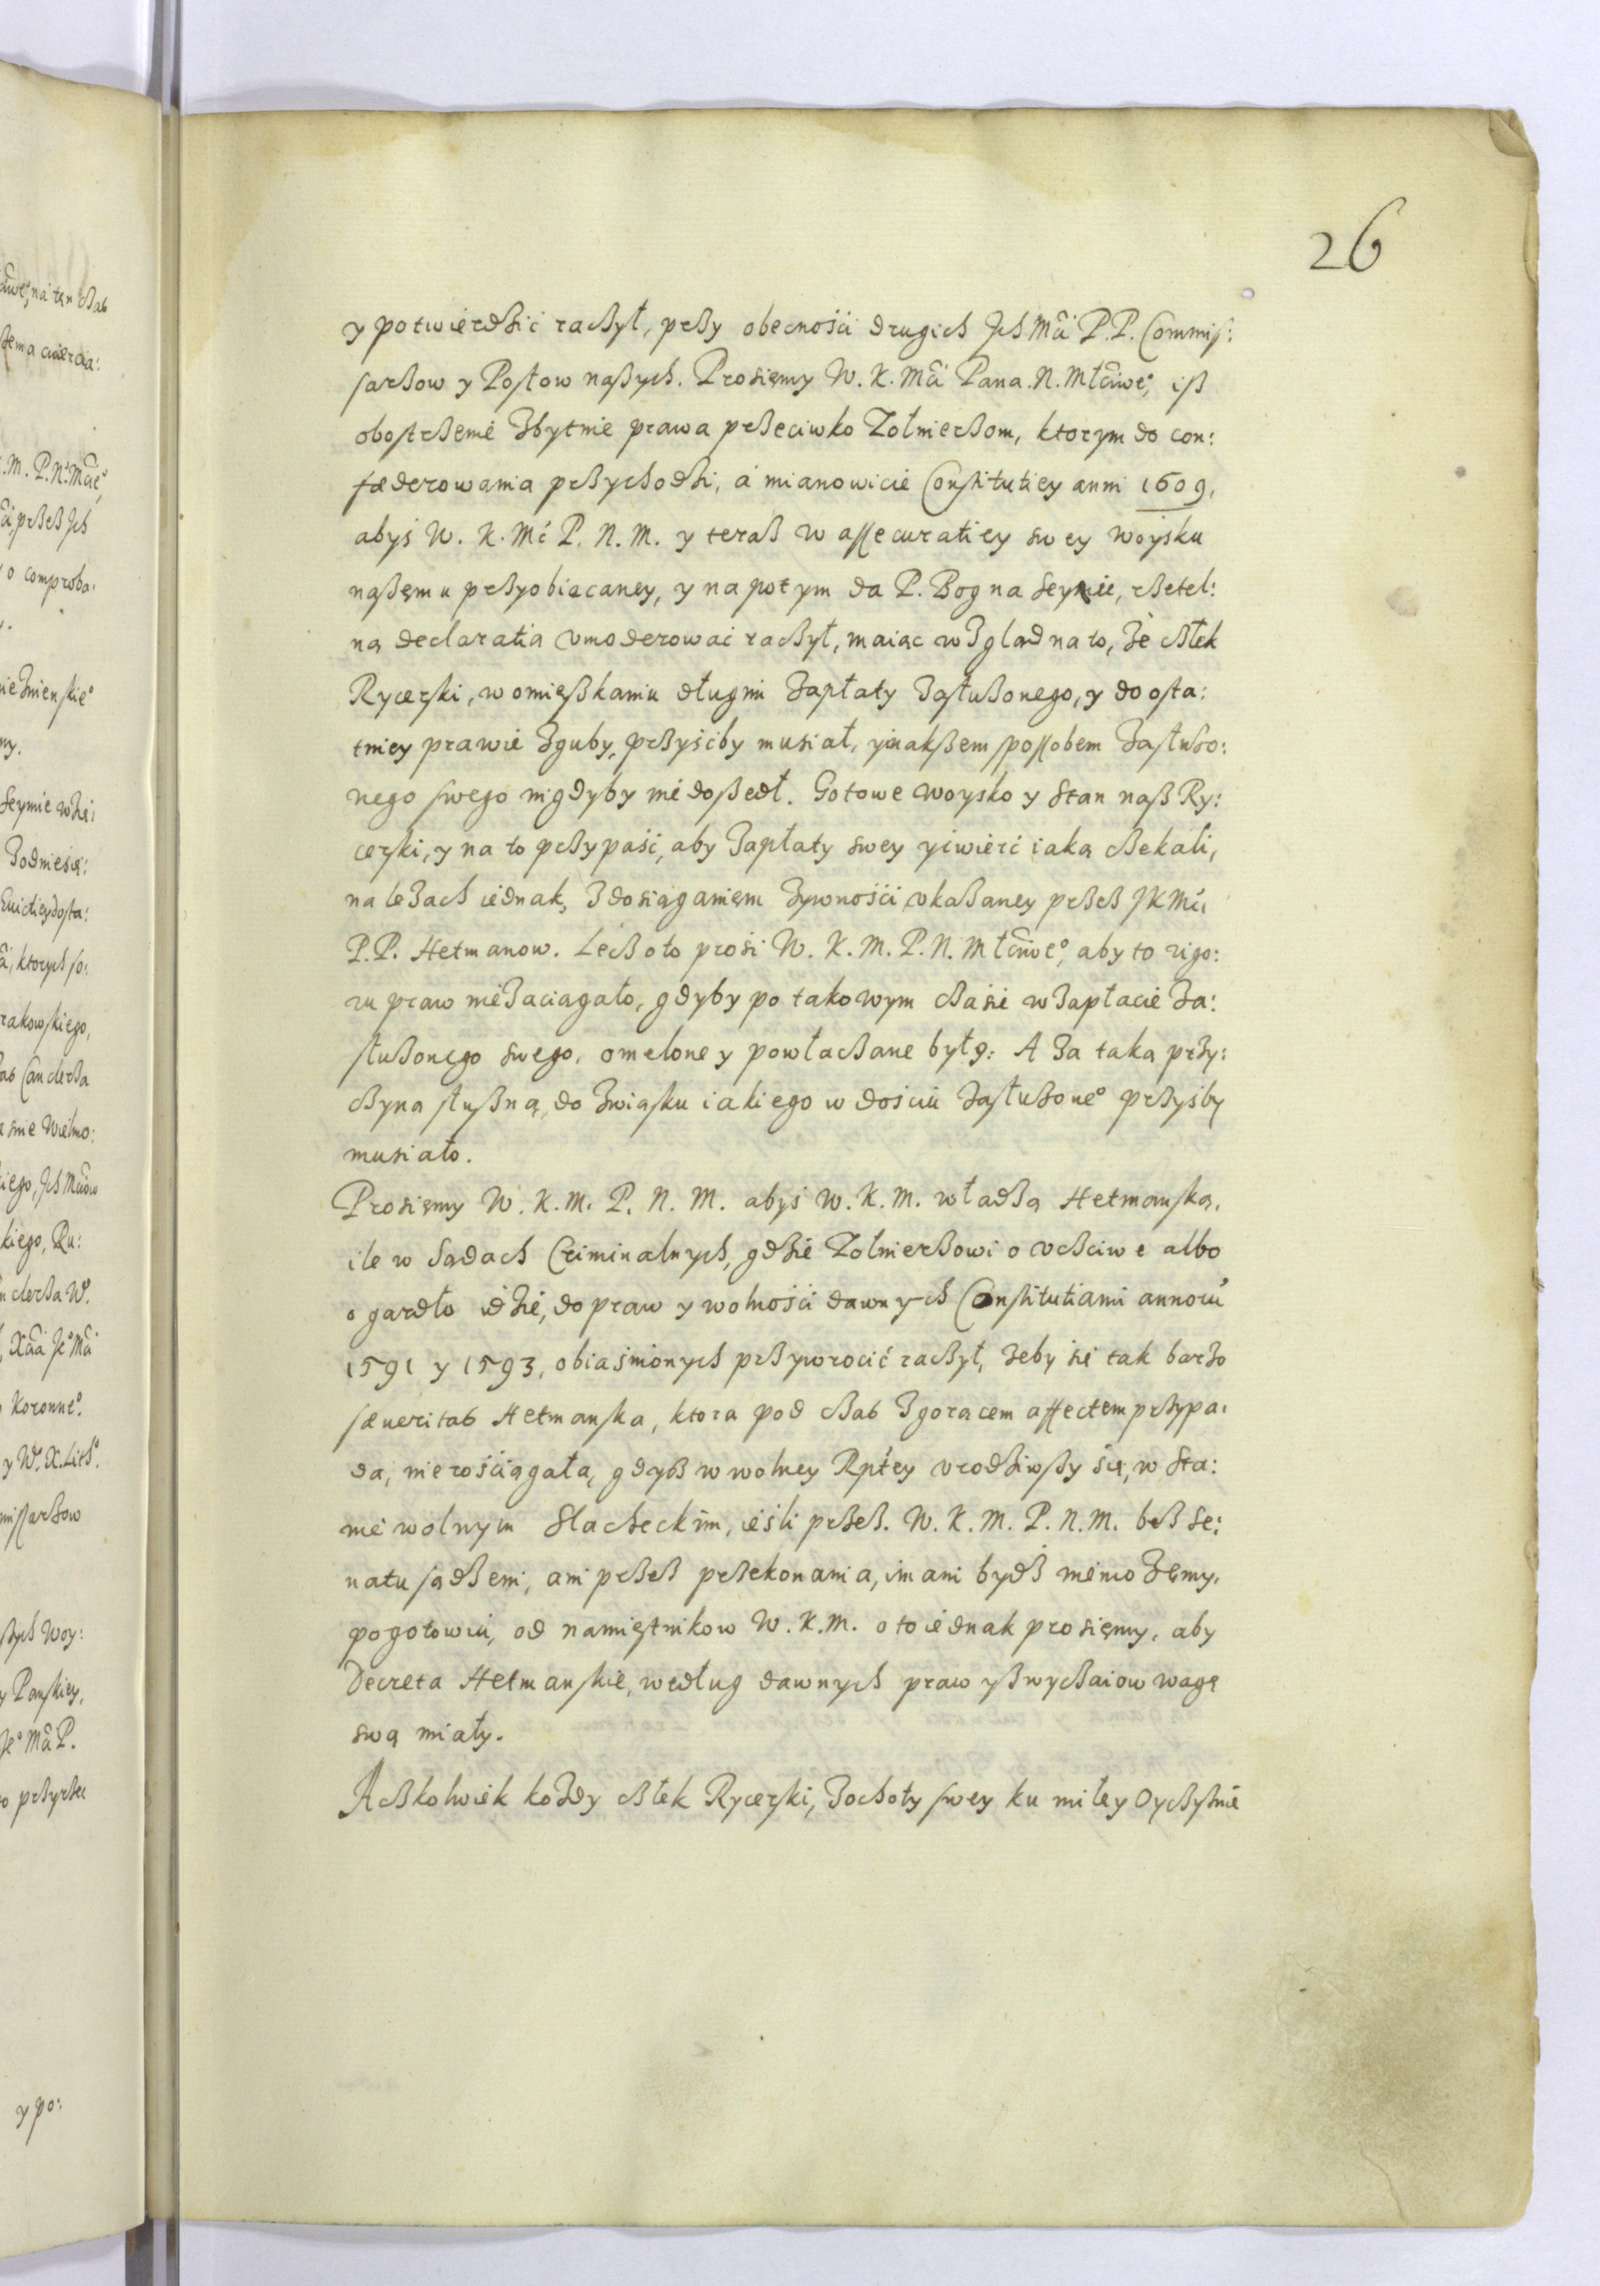 26
y potwierdzić raczył, przy obecnośći drugich Ich Mći P.P. Commis:
sarzow y Posłow naszych. Prosięmy W. K. Mći Pana. N. Młćiwe°, isz
obostrzenie zbytnie prawa przeciwko Zołnierzom, ktorym do con:
fæderowania przychodzi, á mianowicie Constitutiey anni 1609,
abyś W. K. Mć P. N. M. y teraz w assecuratiey swey woysku
naszęmu przyobiecaney, y napotym da P. Bog na Seymie, rzetel:
ną declaratią vmoderowac raczył, maiąc wzgląd na to, że człek
Rycerski, w omięszkaniu długim zapłaty zasłuzonego, y do osta:
tniey prawie zguby, przyśćby musiał, y inakszem spossobem zasłuzo:
nego swego nigdyby nie doszedł. Gotowe woysko y Stan nasz Ry:
cerski, y na to przypaść, aby zapłaty swey y cwierć iaką czekali,
na lezach iednak, z dosiąganięm zywnośći vkazaney przez IKMći
P.P. Hetmanow. Lecz o to prosi W. K. M. P. N. Młćiwe°, aby to rigo:
ru praw nie zaciągało, gdyby po takowym czasie w zapłacie za:
słuzonego swego, omelone y powłaczane było: A za taką przy:
czyną słuszną, do związku iakiego w dośćiu zasłuzone° przyśby
musiało.
Prosięmy W. K. M. P. N. M. abyś W. K. M. władzą Hetmanską,
ile w Sądach Criminalnych, gdzie Zołnierzowi o vczciwe albo
o gardło idzie, do praw y wolnośći dawnych Constitutiami annorū
1591 y 1593, obiaśnionych przywrocić raczył, zeby się tak barzo
sæueritas Hetmanska, ktora pod czas z gorącem affectem przypa:
da, nierośćiągała, gdysz w wolney Rptey vrodziwszy się, w Sta:
nie wolnym Slacheckim, ieśli przez. W. K. M. P. N. M. bez Se:
natu sądzeni, ani przez przekonania, imani bydz nie mozęmy,
pogotowiu, od namięstnikow W. K. M. o to iednak prosięmy, aby
Decreta Hetmanskie, według dawnych praw y zwyczaiow wagę
swą miały.
Aczkolwiek kozdy człek Rycerski, z ochoty swey ku miłey Oyczyznie